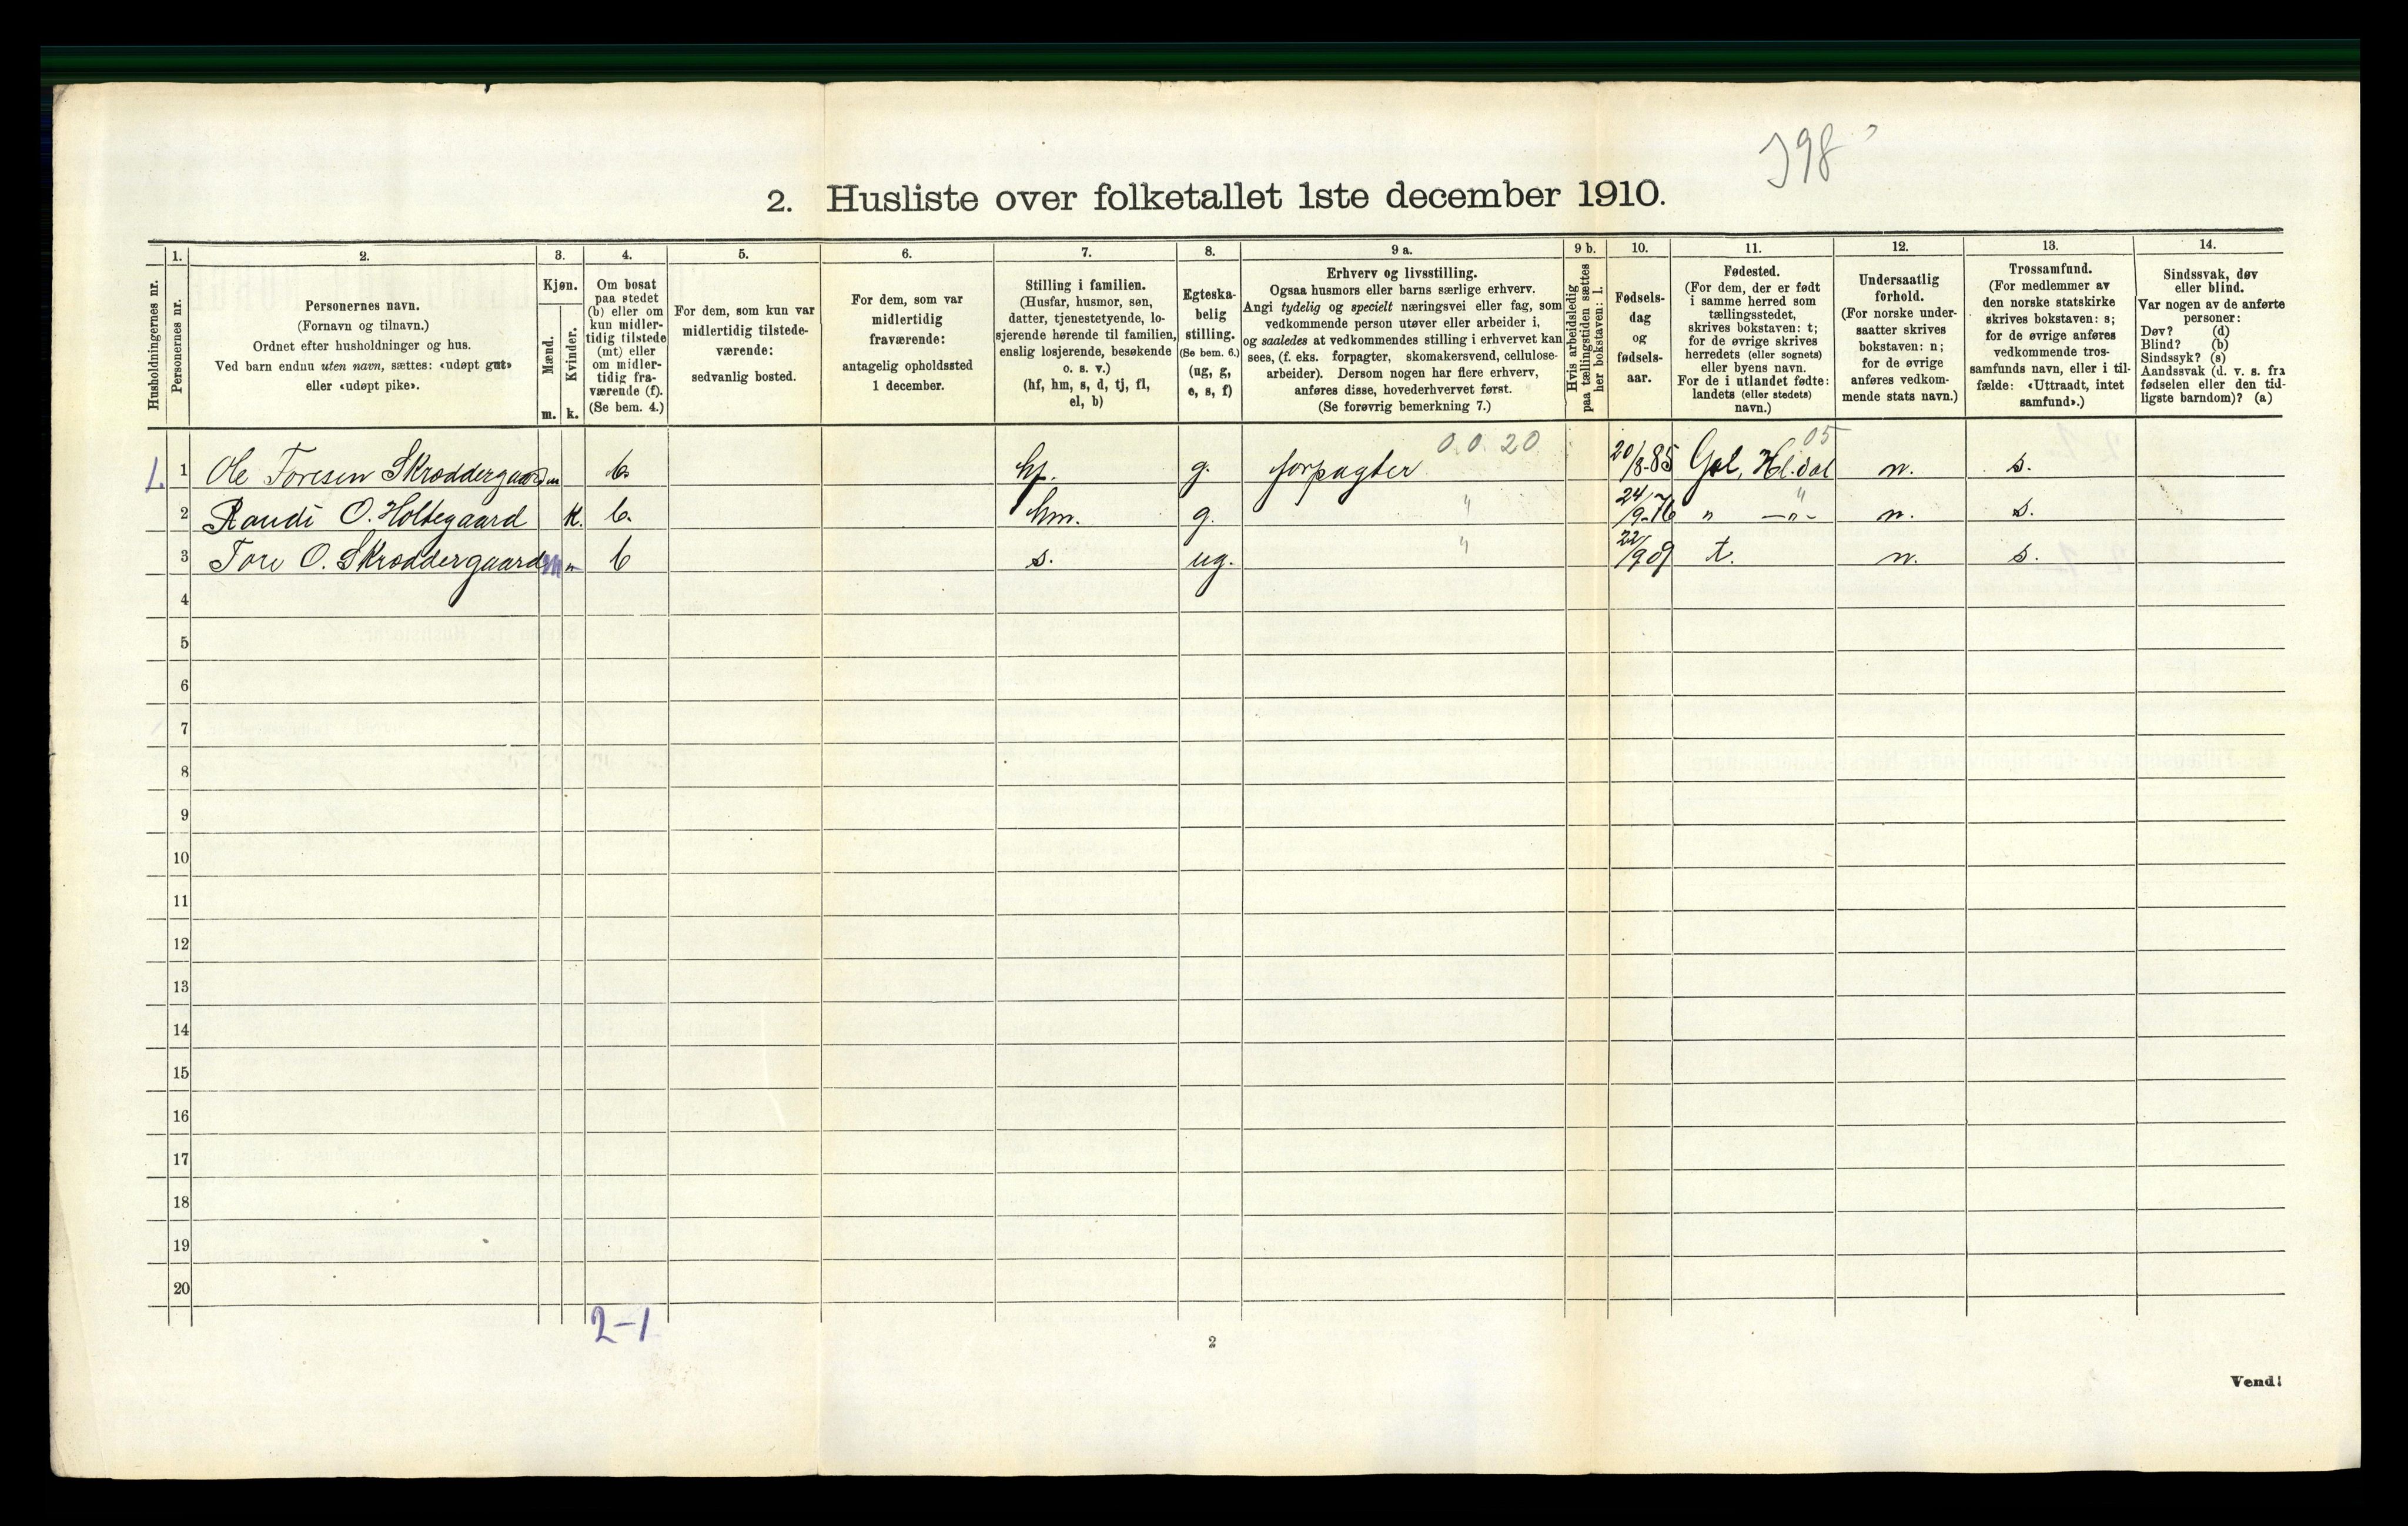 398
2. Husliste over folketallet 1ste december 1910.
Husholdningernes nr.
1.
Personernes nr.
2.
Personernes navn.
(Fornavn og tilnavn.)
Ordnet efter husholdninger og hus.
Ved barn endnu uten navn, sættes: «udøpt gut»
eller «udøpt pike».
3.
Kjøn.
Mænd.
m.
Kvinder.
k.
4.
Om bosat
paa stedet
(b) eller om
kun midler-
tidig tilstede
(mt) eller
om midler-
tidig fra-
værende (f).
(Se bem. 4.)
5.
For dem, som kun var
midlertidig tilstede-
værende:
sedvanlig bosted.
6.
For dem, som var
midlertidig
fraværende:
antagelig opholdssted
1 december.
7.
Stilling i familien.
(Husfar, husmor, søn,
datter, tjenestetyende, lo-
sjerende hørende til familien,
enslig losjerende, besøkende
o. s. v.)
(hf, hm, s, d, tj, fl,
el, b)
8.
Egteska-
belig
stilling.
(Se bem. 6.)
(ug, g,
e, s, f)
9 a.
Erhverv og livsstilling.
Ogsaa husmors eller barns særlige erhverv.
Angi tydelig og specielt næringsvei eller fag, som
vedkommende person utøver eller arbeider i,
og saaledes at vedkommendes stilling i erhvervet kan
sees, (f. eks. forpagter, skomakersvend, cellulose-
arbeider). Dersom nogen har flere erhverv,
anføres disse, hovederhvervet først.
(Se forøvrig bemerkning 7.)
9 b.
Hvis arbeidsledig
paa tællingstiden sættes
her bokstaven: l.
10.
Fødsels-
dag
og
fødsels-
aar.
11.
Fødested.
(For dem, der er født
i samme herred som
tællingsstedet,
skrives bokstaven: t;
for de øvrige skrives
herredets (eller sognets)
eller byens navn.
For de i utlandet fødte:
landets (eller stedets)
navn.)
12.
Undersaatlig
forhold.
(For norske under-
saatter skrives
bokstaven: n;
for de øvrige
anføres vedkom-
mende stats navn.)
13.
Trossamfund.
(For medlemmer av
den norske statskirke
skrives bokstaven: s;
for de øvrige anføres
vedkommende tros-
samfunds navn, eller i til-
fælde: «Uttraadt, intet
samfund».)
14.
Sindssvak, døv
eller blind.
Var nogen av de anførte
personer:
Døv? (d)
Blind? (b)
Sindssyk? (s)
Aandssvak (d. v. s. fra
fødselen eller den tid-
ligste barndom)? (a)
0.0.20 05
1. 1 Ole Toresen Skrøddergaard m b. hf. g. forpagter 20/8-85 Gol, Hl.dal n. s.
2 Randi O. Holtegaard k. b. hm. g. " 24/9-76 " -"- " n. s.
3 Tore O. Skrøddergaard m " b s. ug. " 22/9 09 t. n. s.
4
5
6
7
8
9
10
11
12
13
14
15
16
17
18
19
20
2-1
2
Vend!